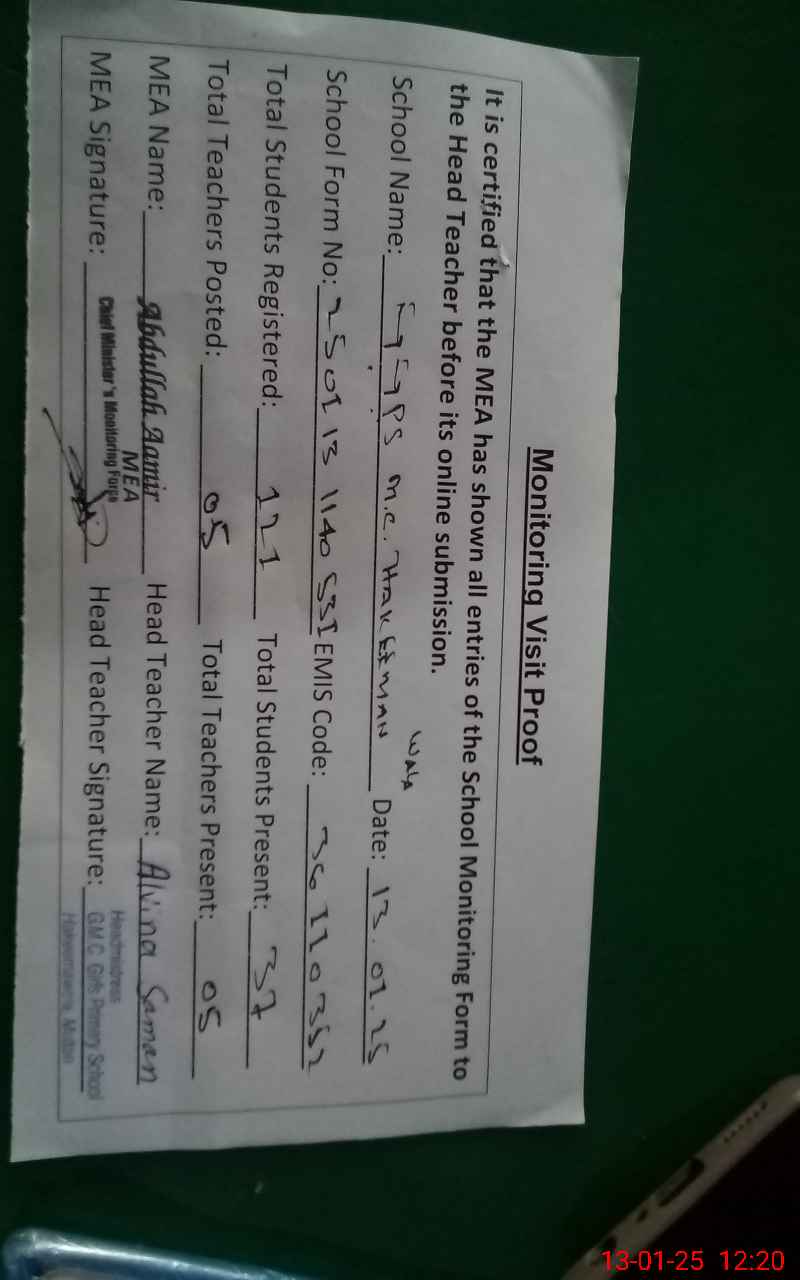 Monitoring Visit Proof
It is certified that the MEA has shown all entries of the School Monitoring Form to
the Head Teacher before its online submission.
School Name: GGPS M.C. HAKEEMAN WALA Date: 13.01.25
School Form No: 2501 13 1140 531 EMIS Code: 36110352
Total Students Registered: 121 Total Students Present: 37
Total Teachers Posted: 05 Total Teachers Present: 05
MEA Name: Abdullah Aamir Head Teacher Name: Alvina Saman
MEA
Chief Minister's Monitoring Force
MEA Signature: Head Teacher Signature:
Headmistress
G.M.C. Girls Primary School
Multan
13-01-25 12:20